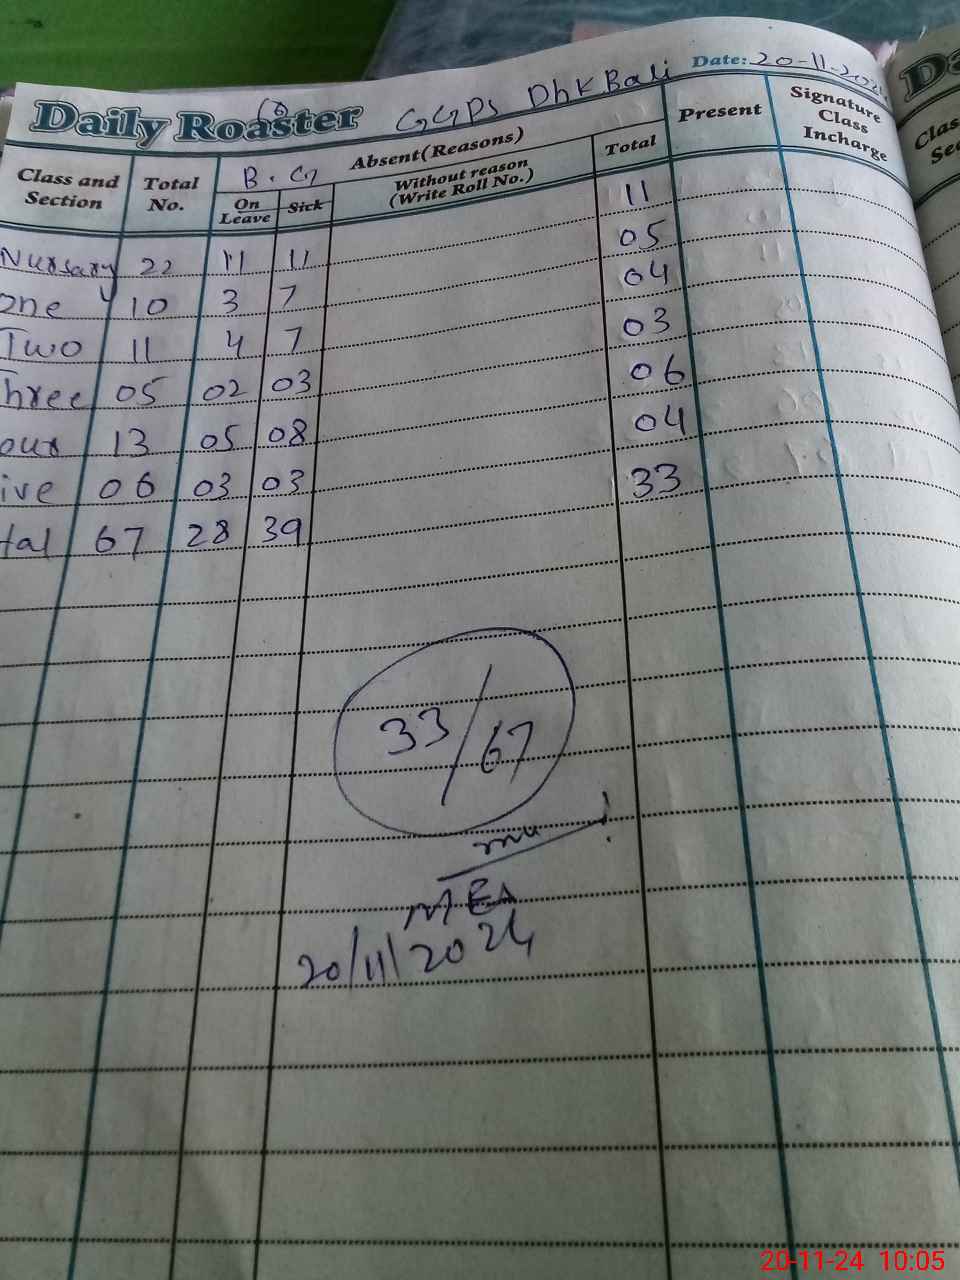 Daily Roaster GGPS Dhk Bali Date: 20-11-202
Class and Section Total No. B. G Absent (Reasons) Present Signature Class Incharge
On Leave Sick Without reason (Write Roll No.) Total
Nursary 22 11 11 11
One 10 3 7 05
Two 11 4 7 04
Three 05 02 03 03
our 13 05 08 06
ive 06 03 03 04
tal 67 28 39 33
33/67
MEA
20/11/2024
Da
Clas
Sec
20-11-24 10:05